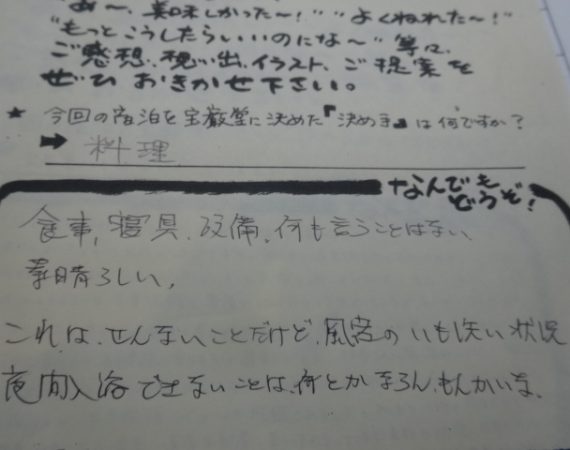 "あ〜、美味しかった〜!""よくねれた〜!"
"もっとこうしたらいいのにな〜"等々、
ご感想、想い出、イラスト、ご提案を
ぜひ おきかせ下さい。
★ 今回の宿泊を宝巌堂に決めた『決め手』は何ですか?
➡ 料理
なんでも
どうぞ!
食事、寝具、設備、何も言うことはない、
素晴ろしい、
これは、せんないことだけど、風呂のいも洗い状況
夜間入浴できないことは、何とかならん、もんかいな、